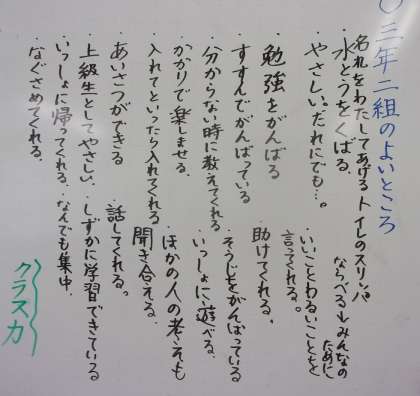 ○三年二組のよいところ
名札をわたしてあげる
トイレのスリッパ
ならべる→みんなの
ために
水とうをくばる
・やさしい。だれにでも…。
・いいことわるいことを
言ってくれる。
・勉強をがんばる
・助けてくれる。
・すすんでがんばっている
・そうじをがんばっている
・分からない時に教えてくれる
・いっしょに遊べる。
・かかりで楽しませる。
・ほかの人の考えも
聞き合える。
・入れてといったら入れてくれる
・あいさつができる
・話してくれる。
・上級生としてやさしい
・しずかに学習できている
・いっしょに帰ってくれる
・なんでも集中
・なぐさめてくれる。
クラス力